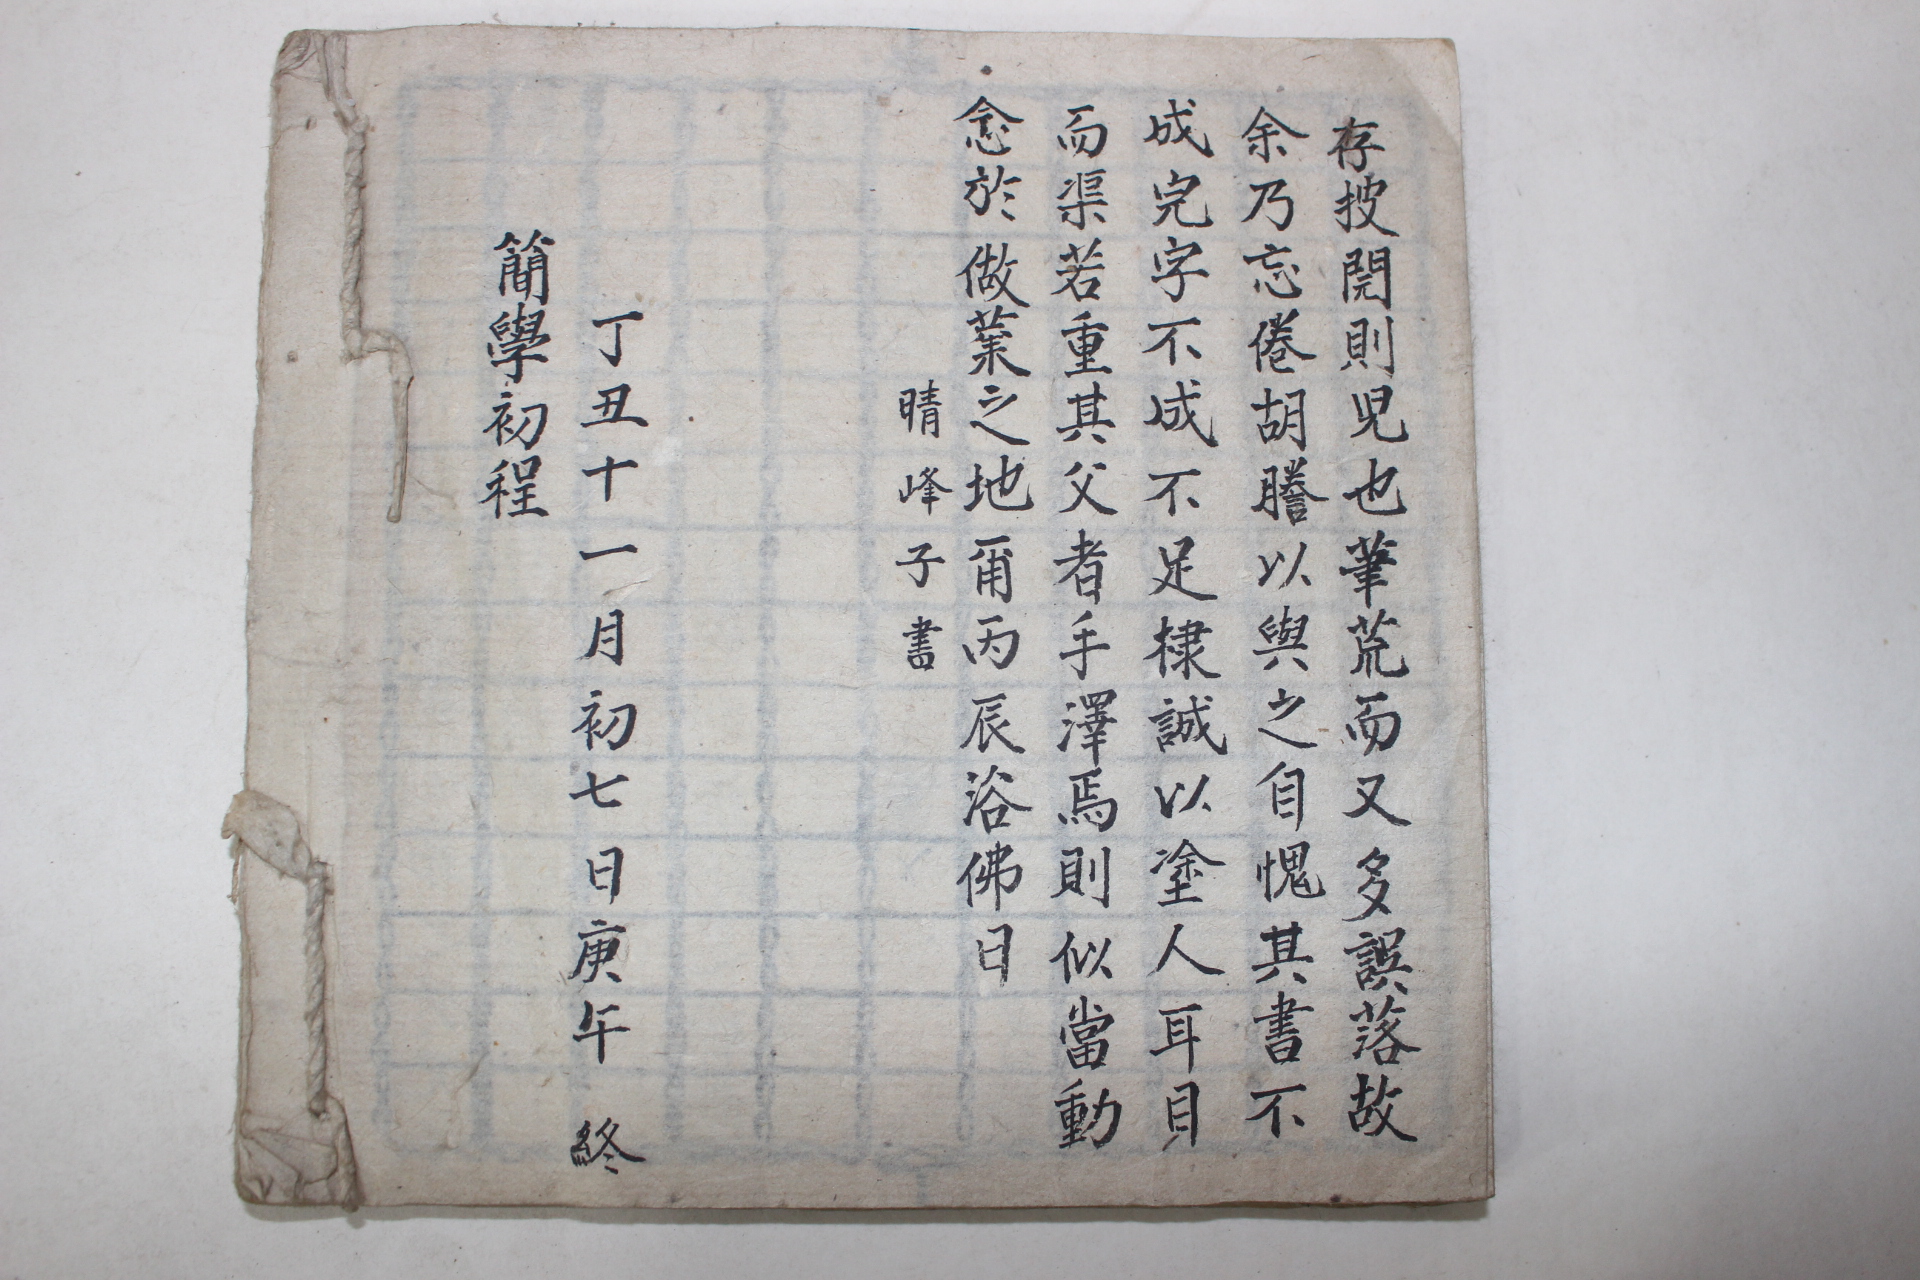 存披閱則児也筆荒而又多誤落故
余乃忘倦胡謄以與之自愧其書不
成完字不成不足棣誠以塗人耳目
而渠若重其父者手澤焉則似當動
念於做業之地爾丙辰浴佛日
晴峰子書
丁丑十一月初七日庚午 終
簡學初程